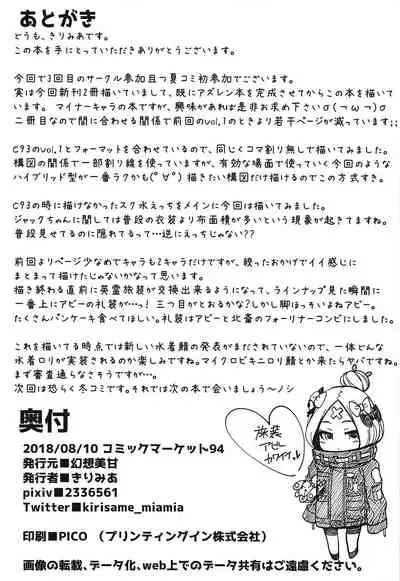 あとがき
どうも、きりみあです。
この本を手にとっていただきありがとうございます。
今回で3回目のサークル参加且つ夏コミ初参加でございます。
実は今回新刊2冊描いていまして、既にアズレン本を完成させてからこの本を描いて
います。 マイナーキャラの本ですが、興味があれば是非お求め下さいσ(っωっ)σ
二冊目なので間に合わせる関係で前回のvol.1のときより若干ページが減っています;;
C93のvol.1とフォーマットを合わせているので、同じくコマ割り無しで描いてみました。
構図の関係で一部割り線を使っていますが、有効な場面で使っていく今回のような
ハイブリッド型が一番ラクかも(°∀°)描きたい構図だけ描けるのでこの方式すき。
C93の時に描けなかったスク水えっちをメインに今回は描いてみました。
ジャックちゃんに関しては普段の衣装より布面積が多いという現象が起きてますね。
普段見せてるのに隠れてるって…逆にえっちじゃない??
前回よりページ少なめでキャラも2キャラだけですが、絞ったおかげでイイ感じに
まとまって描けたじゃないかなって思います。
描き終わる直前に英霊旅装が交換出来るようになって、ラインナップ見た瞬間に
一番上にアビーの礼装が…っ! 三つ目がとおるかな?しかし脚ほっそいよねアビー。
たくさんパンケーキ食べてほしい。礼装はアビーと北斎のフォーリナーコンビにしました。
これを描いてる時点では新しい水着鯖の発表がまだされていないので、一体どんな
水着ロリが実装されるのか楽しみですね。マイクロビキニロリ鯖とか来たらヤバですね。
まず審査通らなさそうですが…。
次回は恐らく冬コミです。それでは次の本で会いましょう〜ノシ
奥付
2018/08/10 コミックマーケット94
発行元■幻想美甘
発行者■きりみあ
pixiv■2336561
Twitter■kirisame_miamia
印刷■PICO （プリンティングイン株式会社）
画像の転載、データ化、web上でのデータ共有はご遠慮ください。
旅装
アビー
カワイイ